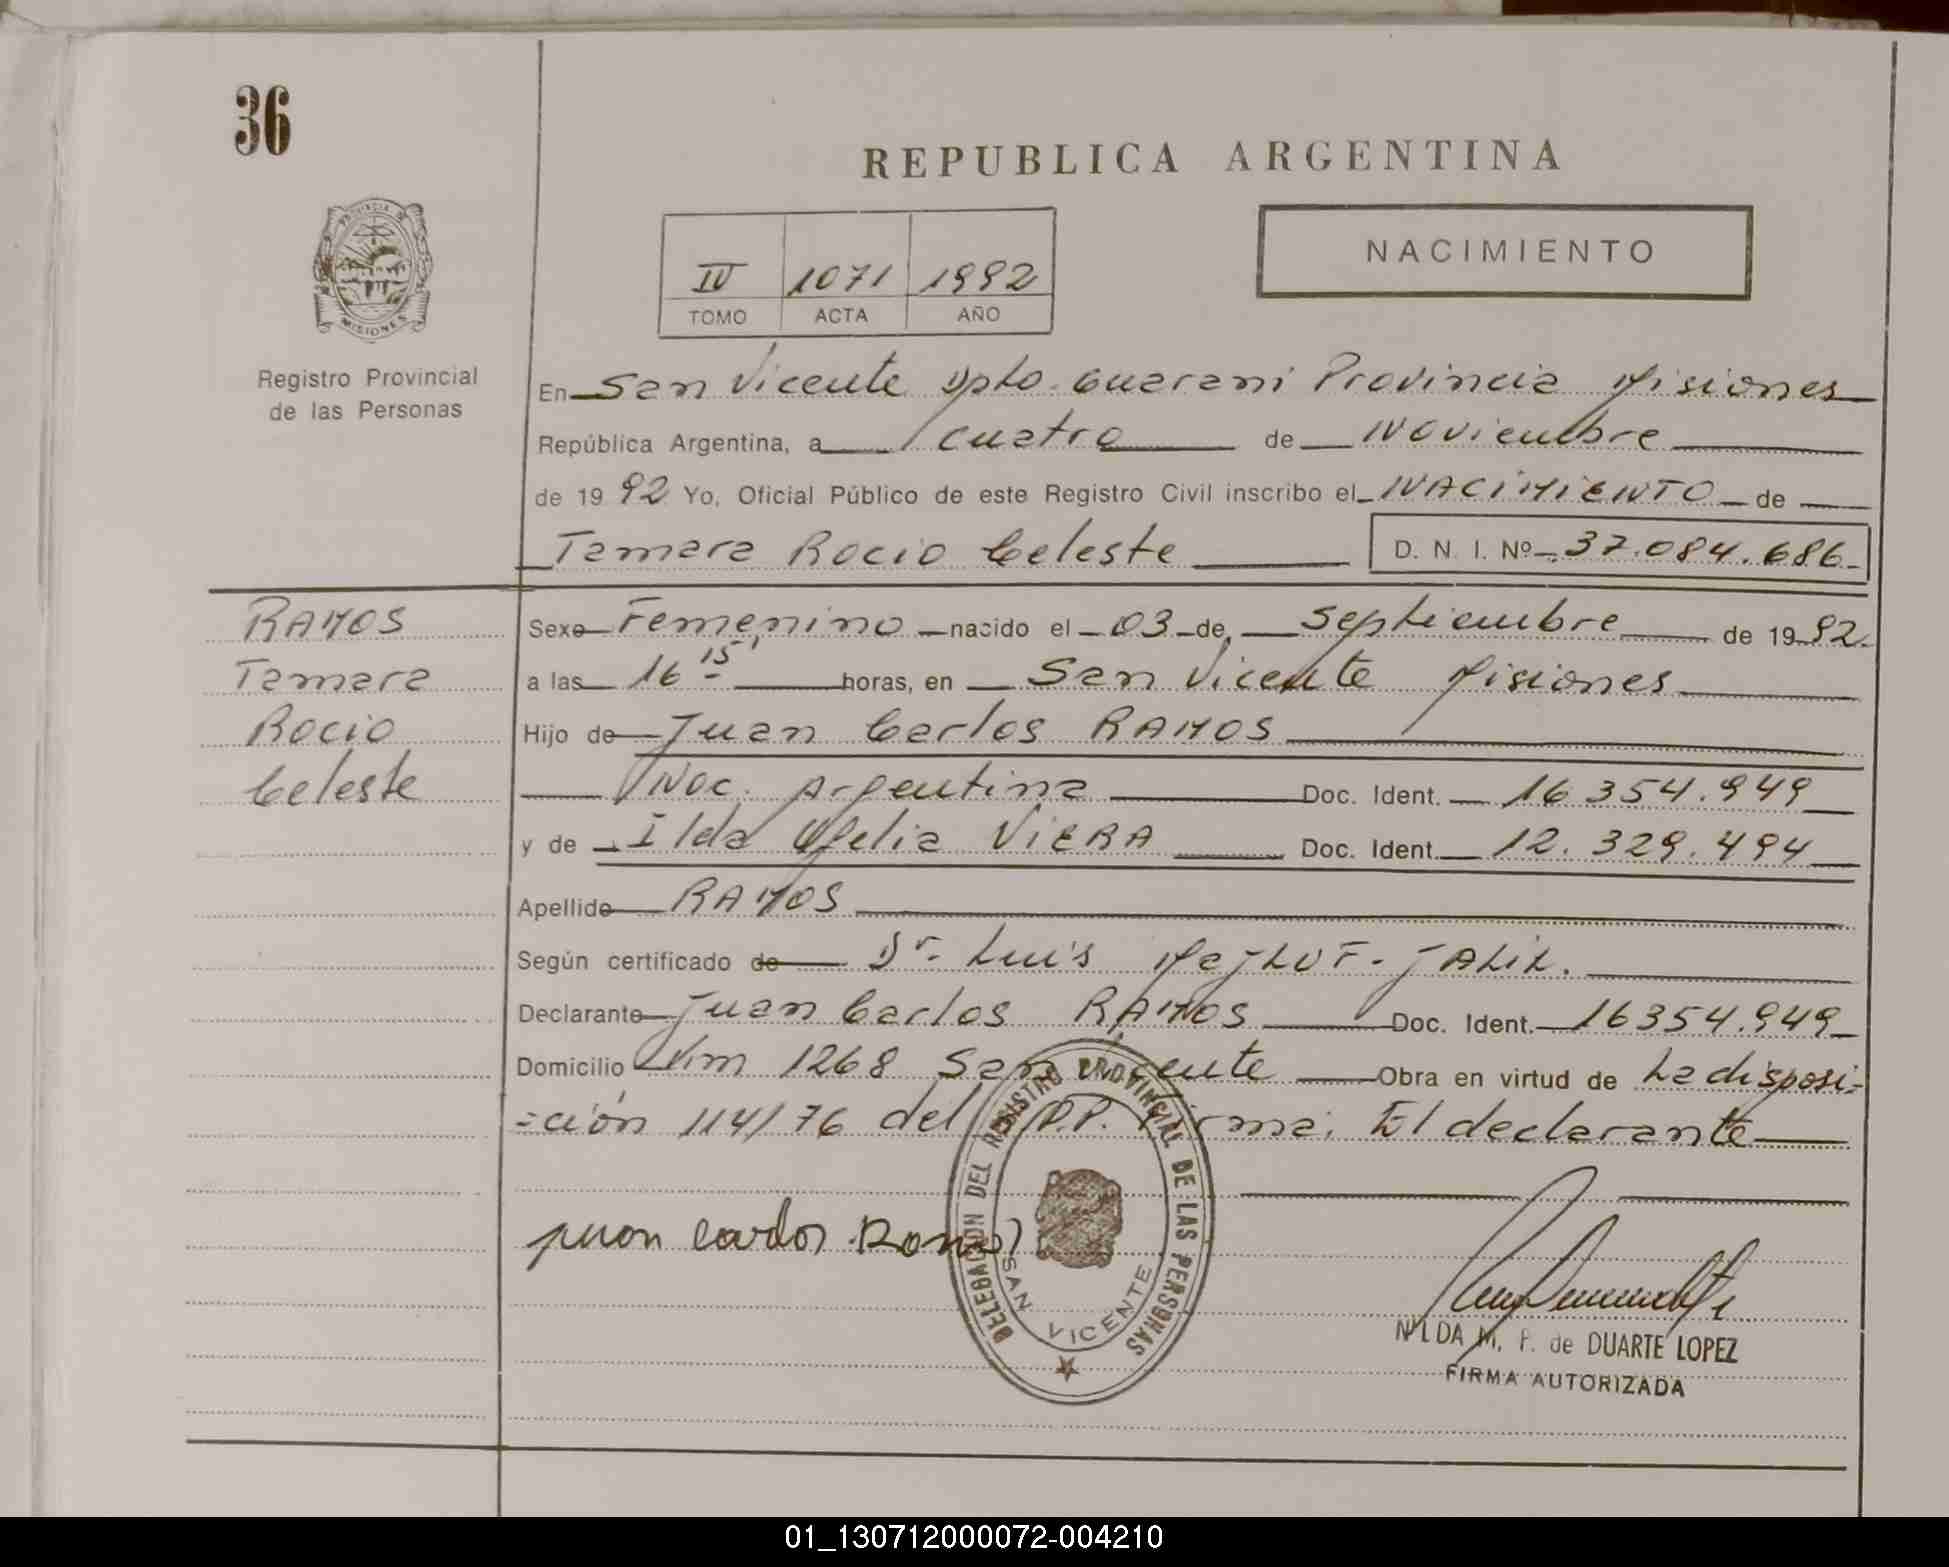 36
REPUBLICA ARGENTINA
NACIMIENTO
IV 1071 1992
TOMO ACTA AÑO
PROVINCIA DE
MISIONES
Registro Provincial
de las Personas
En San Vicente Dpto. Guarani Provincia Misiones
República Argentina, a cuatro de Noviembre
de 1992 Yo, Oficial Público de este Registro Civil inscribo el NACIMIENTO de
Tamara Rocio Celeste D. N. I. Nº 37.084.686
RAMOS
Tamara
Rocio
Celeste
Sexo Femenino nacido el 03 de Septiembre de 1992
a las 16 15' horas, en San Vicente Misiones
Hijo de Juan Carlos RAMOS
Nac. Argentina Doc. Ident. 16 354.949
y de Ilda Ofelia VIERA Doc. Ident. 12.329.494
Apellido RAMOS
Según certificado de Dr. Luis JALIL.
Declarante Juan Carlos RAMOS Doc. Ident. 16354.949
Domicilio Km 1268 San Vicente Obra en virtud de La disposi-
-ción 114/76 del R.P.P. Firma: El declarante
juan carlos Ramos
DELEGACION DEL REGISTRO PROVINCIAL DE LAS PERSONAS
SAN VICENTE
NILDA M. P. de DUARTE LOPEZ
FIRMA AUTORIZADA
01_130712000072-004210